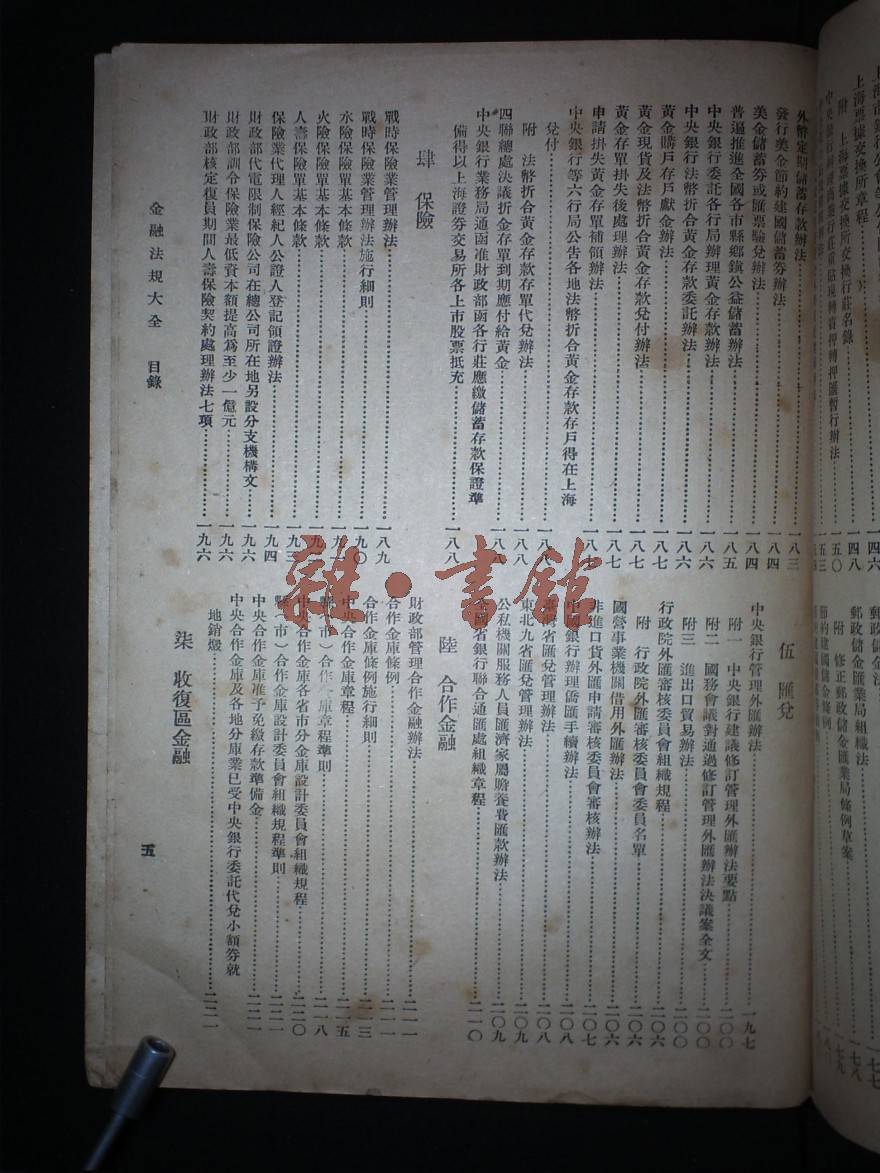 外幣定期儲蓄存款辦法……一八三
發行美金節約建國儲蓄券辦法……一八四
美金儲蓄券或匯票驗兌辦法……一八四
普遍推進全國各市縣鄉鎮公益儲蓄辦法……一八五
中央銀行委託各行局辦理黃金存款辦法……一八六
中央銀行法幣折合黃金存款委託辦法……一八六
黃金購戶存戶獻金辦法……一八七
黃金現貨及法幣折合黃金存款兌付辦法……一八七
黃金存單掛失後處理辦法……一八七
申請掛失黃金存單補領辦法……一八七
中央銀行等六行局公告各地法幣折合黃金存款存戶得在上海
兌付……一八八
附 法幣折合黃金存款存單代兌辦法……一八八
四聯總處決議折金存單到期應付給黃金……一八八
中央銀行業務局通函准財政部函各行莊應繳儲蓄存款保證準
備得以上海證券交易所各上市股票抵充……一八八
肆 保險
戰時保險業管理辦法……一八九
戰時保險業管理辦法施行細則……一九〇
水險保險單基本條款……一九一
火險保險單基本條款……一九
人壽保險單基本條款……一九三
保險業代理人經紀人公證人登記領證辦法……一九四
財政部代電限制保險公司在總公司所在地另設分支機構文……一九六
財政部訓令保險業最低資本額提高為至少一億元……一九六
財政部核定復員期間人壽保險契約處理辦法七項……一九六
伍 匯兌
中央銀行管理外匯辦法……一九七
附一 中央銀行建議修訂管理外匯辦法要點……二〇〇
附二 國務會議對通過修訂管理外匯辦法決議案全文……二〇〇
附三 進出口貿易辦法……二〇〇
行政院外匯審核委員會組織規程……二〇六
附 行政院外匯審核委員會委員名單……二〇六
國營事業機關借用外匯辦法……二〇六
非進口貨外匯申請審核委員會審核辦法……二〇七
中國銀行辦理僑匯手續辦法……二〇八
臺灣省匯兌管理辦法……二〇八
東北九省匯兌管理辦法……二〇九
公私機關服務人員匯濟家屬贍養費匯款辦法……二〇九
全國省銀行聯合通匯處組織章程……二一〇
陸 合作金融
財政部管理合作金融辦法……二一一
合作金庫條例……二一一
合作金庫條例施行細則……二一三
中央合作金庫章程……二一五
縣(市)合作金庫章程準則……二一八
中央合作金庫各省市分金庫設計委員會組織規程……二二〇
縣(市)合作金庫設計委員會組織規程準則……二二一
中央合作金庫准予免繳存款準備金……二二一
中央合作金庫及各地分庫業已受中央銀行委託代兌小額券就
地銷燬……二二一
柒 收復區金融
金融法規大全 目錄
五
雜·書館
上海票據交換所章程
附 上海票據交換所交換行莊名錄
郵政儲金法
郵政儲金匯業局組織法
附 修正郵政儲金匯業局條例草案
節約建國儲金條例